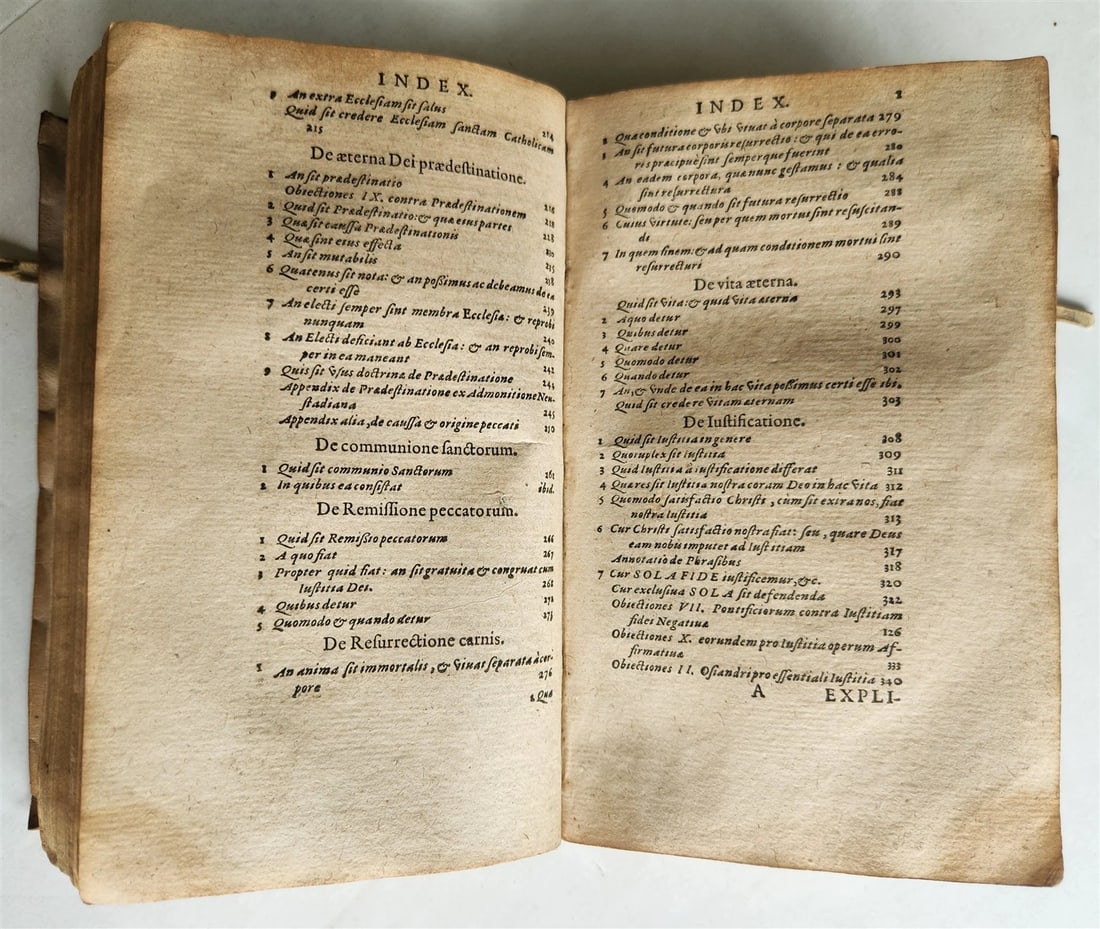 INDEX.
9 An extra Ecclesiam sit salus 214
Quid sit credere Ecclesiam sanctam Catholicam
215
De æterna Dei prædestinatione.
1 An sit prædestinatio
Obiectiones IX. contra Prædestinationem 216
2 Quid sit Prædestinatio: & quæ eius partes 218
3 Quæ sit caussa Prædestinationis 218
4 Quæ sint eius effecta
5 An sit mutabilis
6 Quatenus sit nota: & an possimus ac debeamus de ea
certi esse 239
7 An electi semper sint membra Ecclesiæ: & reprobi
nunquam 240
8 An Electi deficiant ab Ecclesia: & an reprobi sem-
per in ea maneant 242
9 Quis sit vsus doctrinæ de Prædestinatione 244
Appendix de Prædestinatione ex Admonitione Neu-
stadiana 245
Appendix alia, de caussa & origine peccati 250
De communione sanctorum.
1 Quid sit communio Sanctorum 261
2 In quibus ea consistat ibid.
De Remissione peccatorum.
1 Quid sit Remissio peccatorum 266
2 A quo fiat 267
3 Propter quid fiat: an sit gratuita & congruat cum
Iustitia Dei. 268
4 Quibus detur 272
5 Quomodo & quando detur 275
De Resurrectione carnis.
1 An anima sit immortalis, & viuat separata à cor-
pore 276
2 Quæ
INDEX. 2
2 Quæ conditione & vbi viuat à corpore separata 279
3 An sit futura corporis resurrectio: & qui de ea erro-
ris præcipuè sint semperque fuerint 280
4 An eadem corpora, quæ nunc gestamus: & qualia
sint resurrectura 284
5 Quomodo & quando sit futura resurrectio 288
6 Cuius virtute: seu per quem mortui sint resuscitan-
di 289
7 In quem finem: & ad quam conditionem mortui sint
resurrecturi 290
De vita æterna.
Quid sit vita: & quid vita æterna 293
2 A quo detur 297
3 Quibus detur 299
4 Quare detur 300
5 Quomodo detur 301
6 Quando detur 302
7 An, & vnde de ea in hac vita possimus certi esse ibi.
Quid sit credere vitam æternam 303
De Iustificatione.
1 Quid sit Iustitia in genere 308
2 Quotuplex sit Iustitia 309
3 Quid Iustitia à iustificatione differat 311
4 Quæ res sit Iustitia nostra coram Deo in hac vita 312
5 Quomodo satisfactio Christi, cùm sit extra nos, fiat
nostra Iustitia 313
6 Cur Christi satisfactio nostra fiat: seu, quare Deus
eam nobis imputet ad Iustitiam 317
Annotatio de Phrasibus 318
7 Cur SOLA FIDE iustificemur, &c. 320
Cur exclusiua SOLA sit defendenda 322
Obiectiones VII. Pontificiorum contra Iustitiam
fidei Negatiuæ 126
Obiectiones X. eorundem pro Iustitia operum Af-
firmatiuæ 333
Obiectiones II. Osiandri pro essentiali Iustitia 340
A EXPLI-